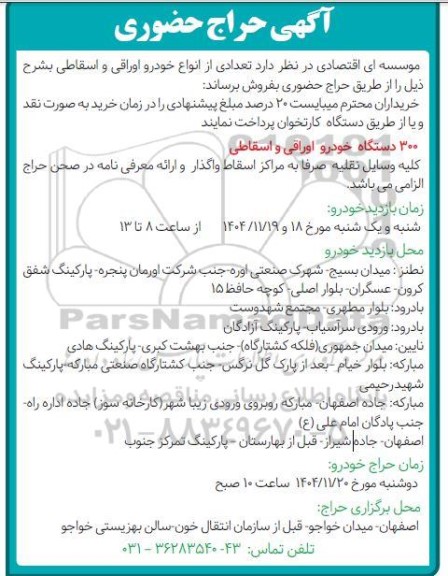 آگهی حراج حضوری
موسسه ای اقتصادی در نظر دارد تعدادی از انواع خودرو اوراقی و اسقاطی بشرح
ذیل را از طریق حراج حضوری بفروش برساند:
خریداران محترم میبایست ۲۰ درصد مبلغ پیشنهادی را در زمان خرید به صورت نقد
و یا از طریق دستگاه کارتخوان پرداخت نمایند
۳۰۰ دستگاه خودرو اوراقی و اسقاطی
کلیه وسایل نقلیه صرفا به مراکز اسقاط واگذار و ارائه معرفی نامه در صحن حراج
الزامی می باشد.
زمان بازدید خودرو:
شنبه و یک شنبه مورخ ۱۸ و ۱۴۰۴/۱۱/۱۹ از ساعت ۸ تا ۱۳
محل بازدید خودرو
نطنز: میدان بسیج- شهرک صنعتی اوره-جنب شرکت اورمان پنجره- پارکینگ شفق
کرون- عسگران- بلوار اصلی- کوچه حافظ ۱۵
بادرود: بلوار مطهری- مجتمع شهدوست
بادرود: ورودی سرآسیاب- پارکینگ آزادگان
نایین: میدان جمهوری(فلکه کشتارگاه)- جنب بهشت کبری- پارکینگ هادی
مبارکه: بلوار خیام - بعد از پارک گل نرگس- جنب کشتارگاه صنعتی مبارکه-پارکینگ
شهیدرحیمی
مبارکه: جاده اصفهان- مبارکه روبروی ورودی زیبا شهر(کارخانه سوز) جاده اداره راه-
جنب پادگان امام علی (ع)
اصفهان- جاده شیراز- قبل از بهارستان - پارکینگ تمرکز جنوب
زمان حراج خودرو:
دوشنبه مورخ ۱۴۰۴/۱۱/۲۰ ساعت ۱۰ صبح
محل برگزاری حراج:
اصفهان- میدان خواجو- قبل از سازمان انتقال خون-سالن بهزیستی خواجو
تلفن تماس: ۴۳- ۳۶۲۸۳۵۴۰ - ۰۳۱
ParsNamadData
۰۲۱-۸۸۳۴۹۶۷۰-۵